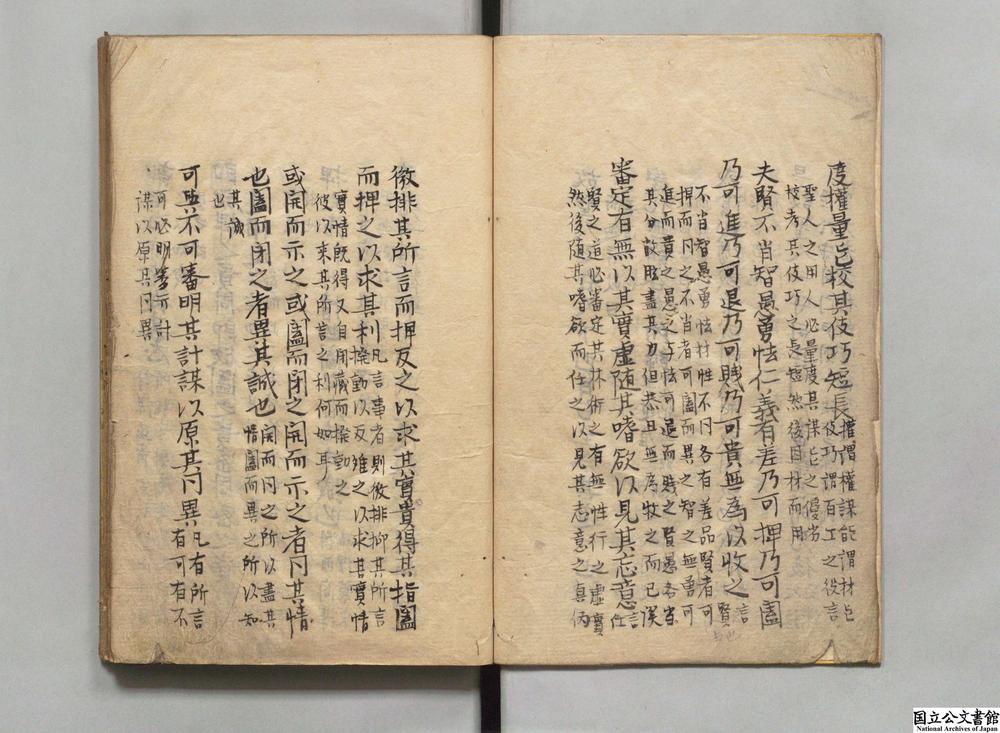 度權量能校其伎巧短長權謂權謀能謂材能
伎巧謂百工之役言
聖人之用人必量度其謀能之優劣
校考其伎巧之長短然後因材而用
夫賢不肖智愚勇怯仁義有差乃可捭乃可闔
乃可進乃可退乃可賤乃可貴無為以牧之言
賢
不肖智愚勇怯材性不同各有差品賢者可
捭而同之不肖者可闔而異之智之與勇可
進而貴之愚之與怯可退而賤之賢愚各當
其分股肱盡其力但恭己無為牧之而已矣
審定有無以其實虛随其嗜欲以見其志意言
任
賢之道必審定其材術之有無性行之虛實
然後随其嗜欲而任之以見其志意之真偽
微排其所言而捭反之以求其實貴得其指闔
而捭之以求其利凡言事者則微排抑其所言
撥動以反難之以求其實情
實情既得又自閉藏而撥動之
彼以来其所言之利何如耳
或開而示之或闔而閉之開而示之者同其情
也闔而閉之者異其誠也開而同之所以盡其
情闔而異之所以知
其誠
也
可與不可審明其計謀以原其同異凡有所言
有可有不
可必明審其計
謀以原其同異
国立公文書館
National Archives of Japan